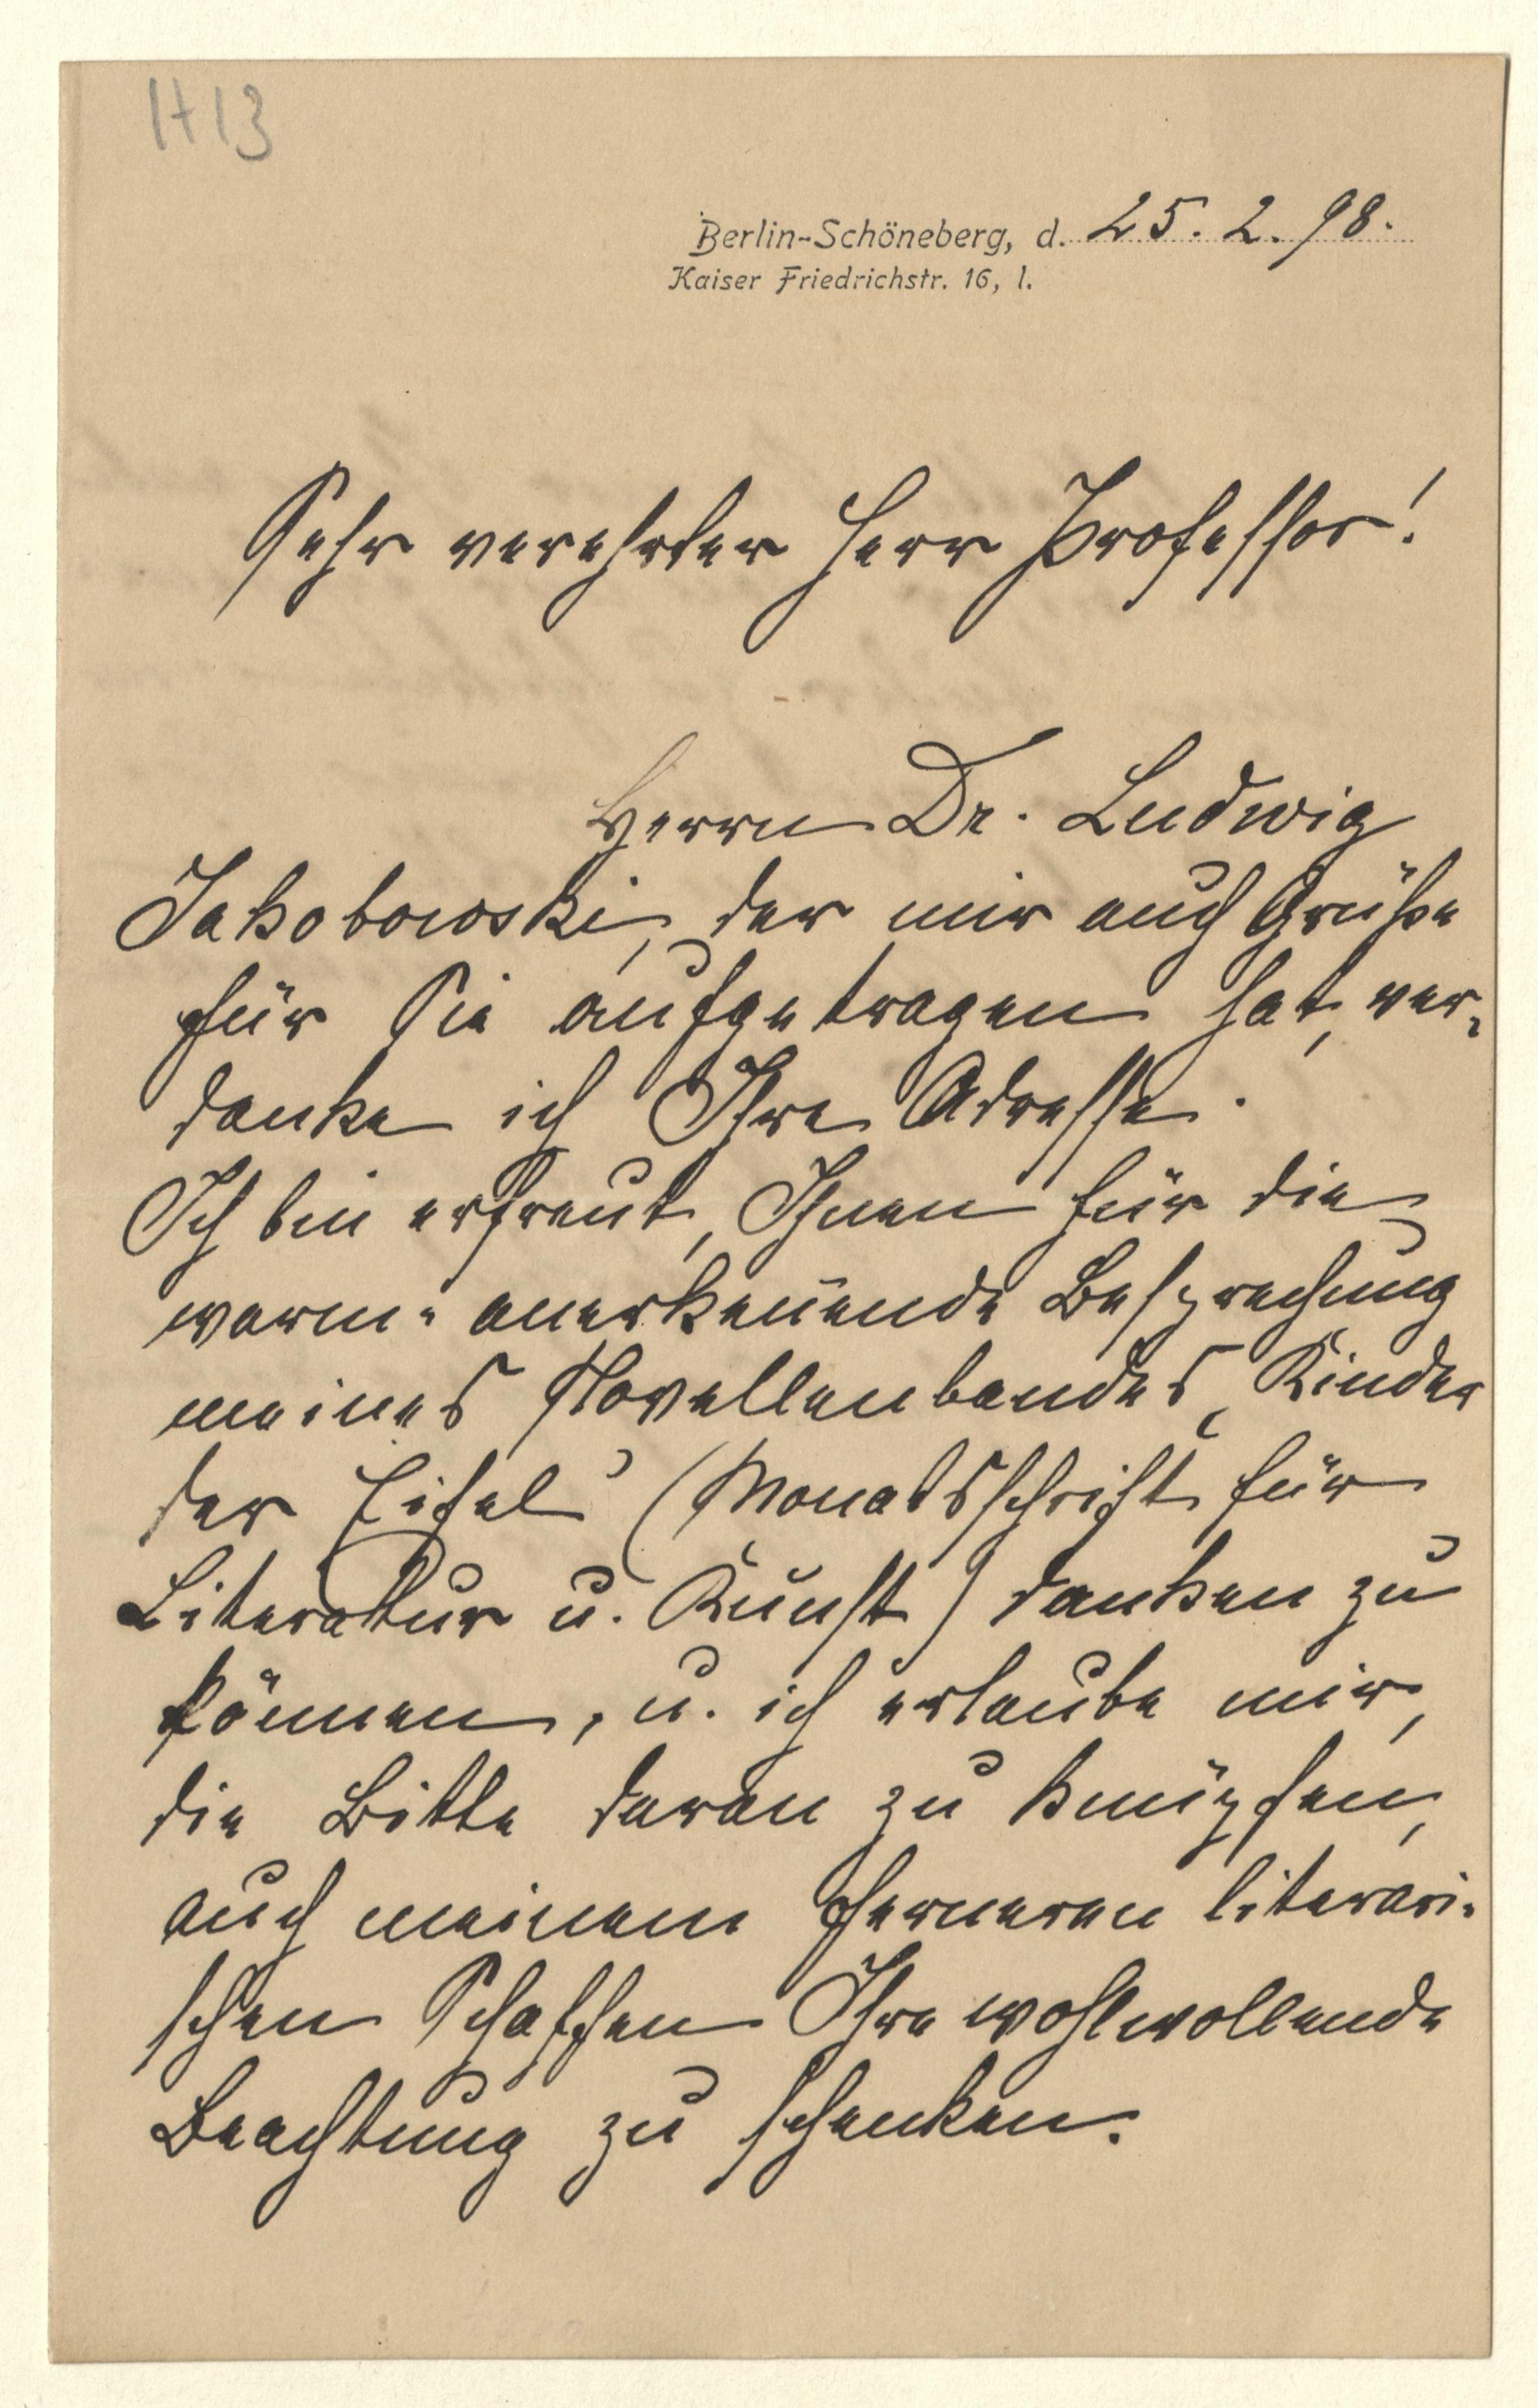 H 13
Berlin-Schöneberg, d. 25. 2. 98.
Kaiser Friedrichstr. 16, I.
Sehr verehrter Herr Professor!
Herrn Dr. Ludwig
Jakobowski, der mir auch Grüße
für Sie aufgetragen hat, ver-
danke ich Ihre Adresse.
Ich bin erfreut, Ihnen für die
warm-anerkeñende Besprechung
meines Novellenbandes „Kinder
der Eifel“ (Monatsschrift für
Literatur u. Kunst) danken zu
können, u. ich erlaube mir,
die Bitte daran zu knüpfen,
auch meinem ferneren literari-
schen Schaffen Ihre wohlwollende
Beachtung zu schenken.